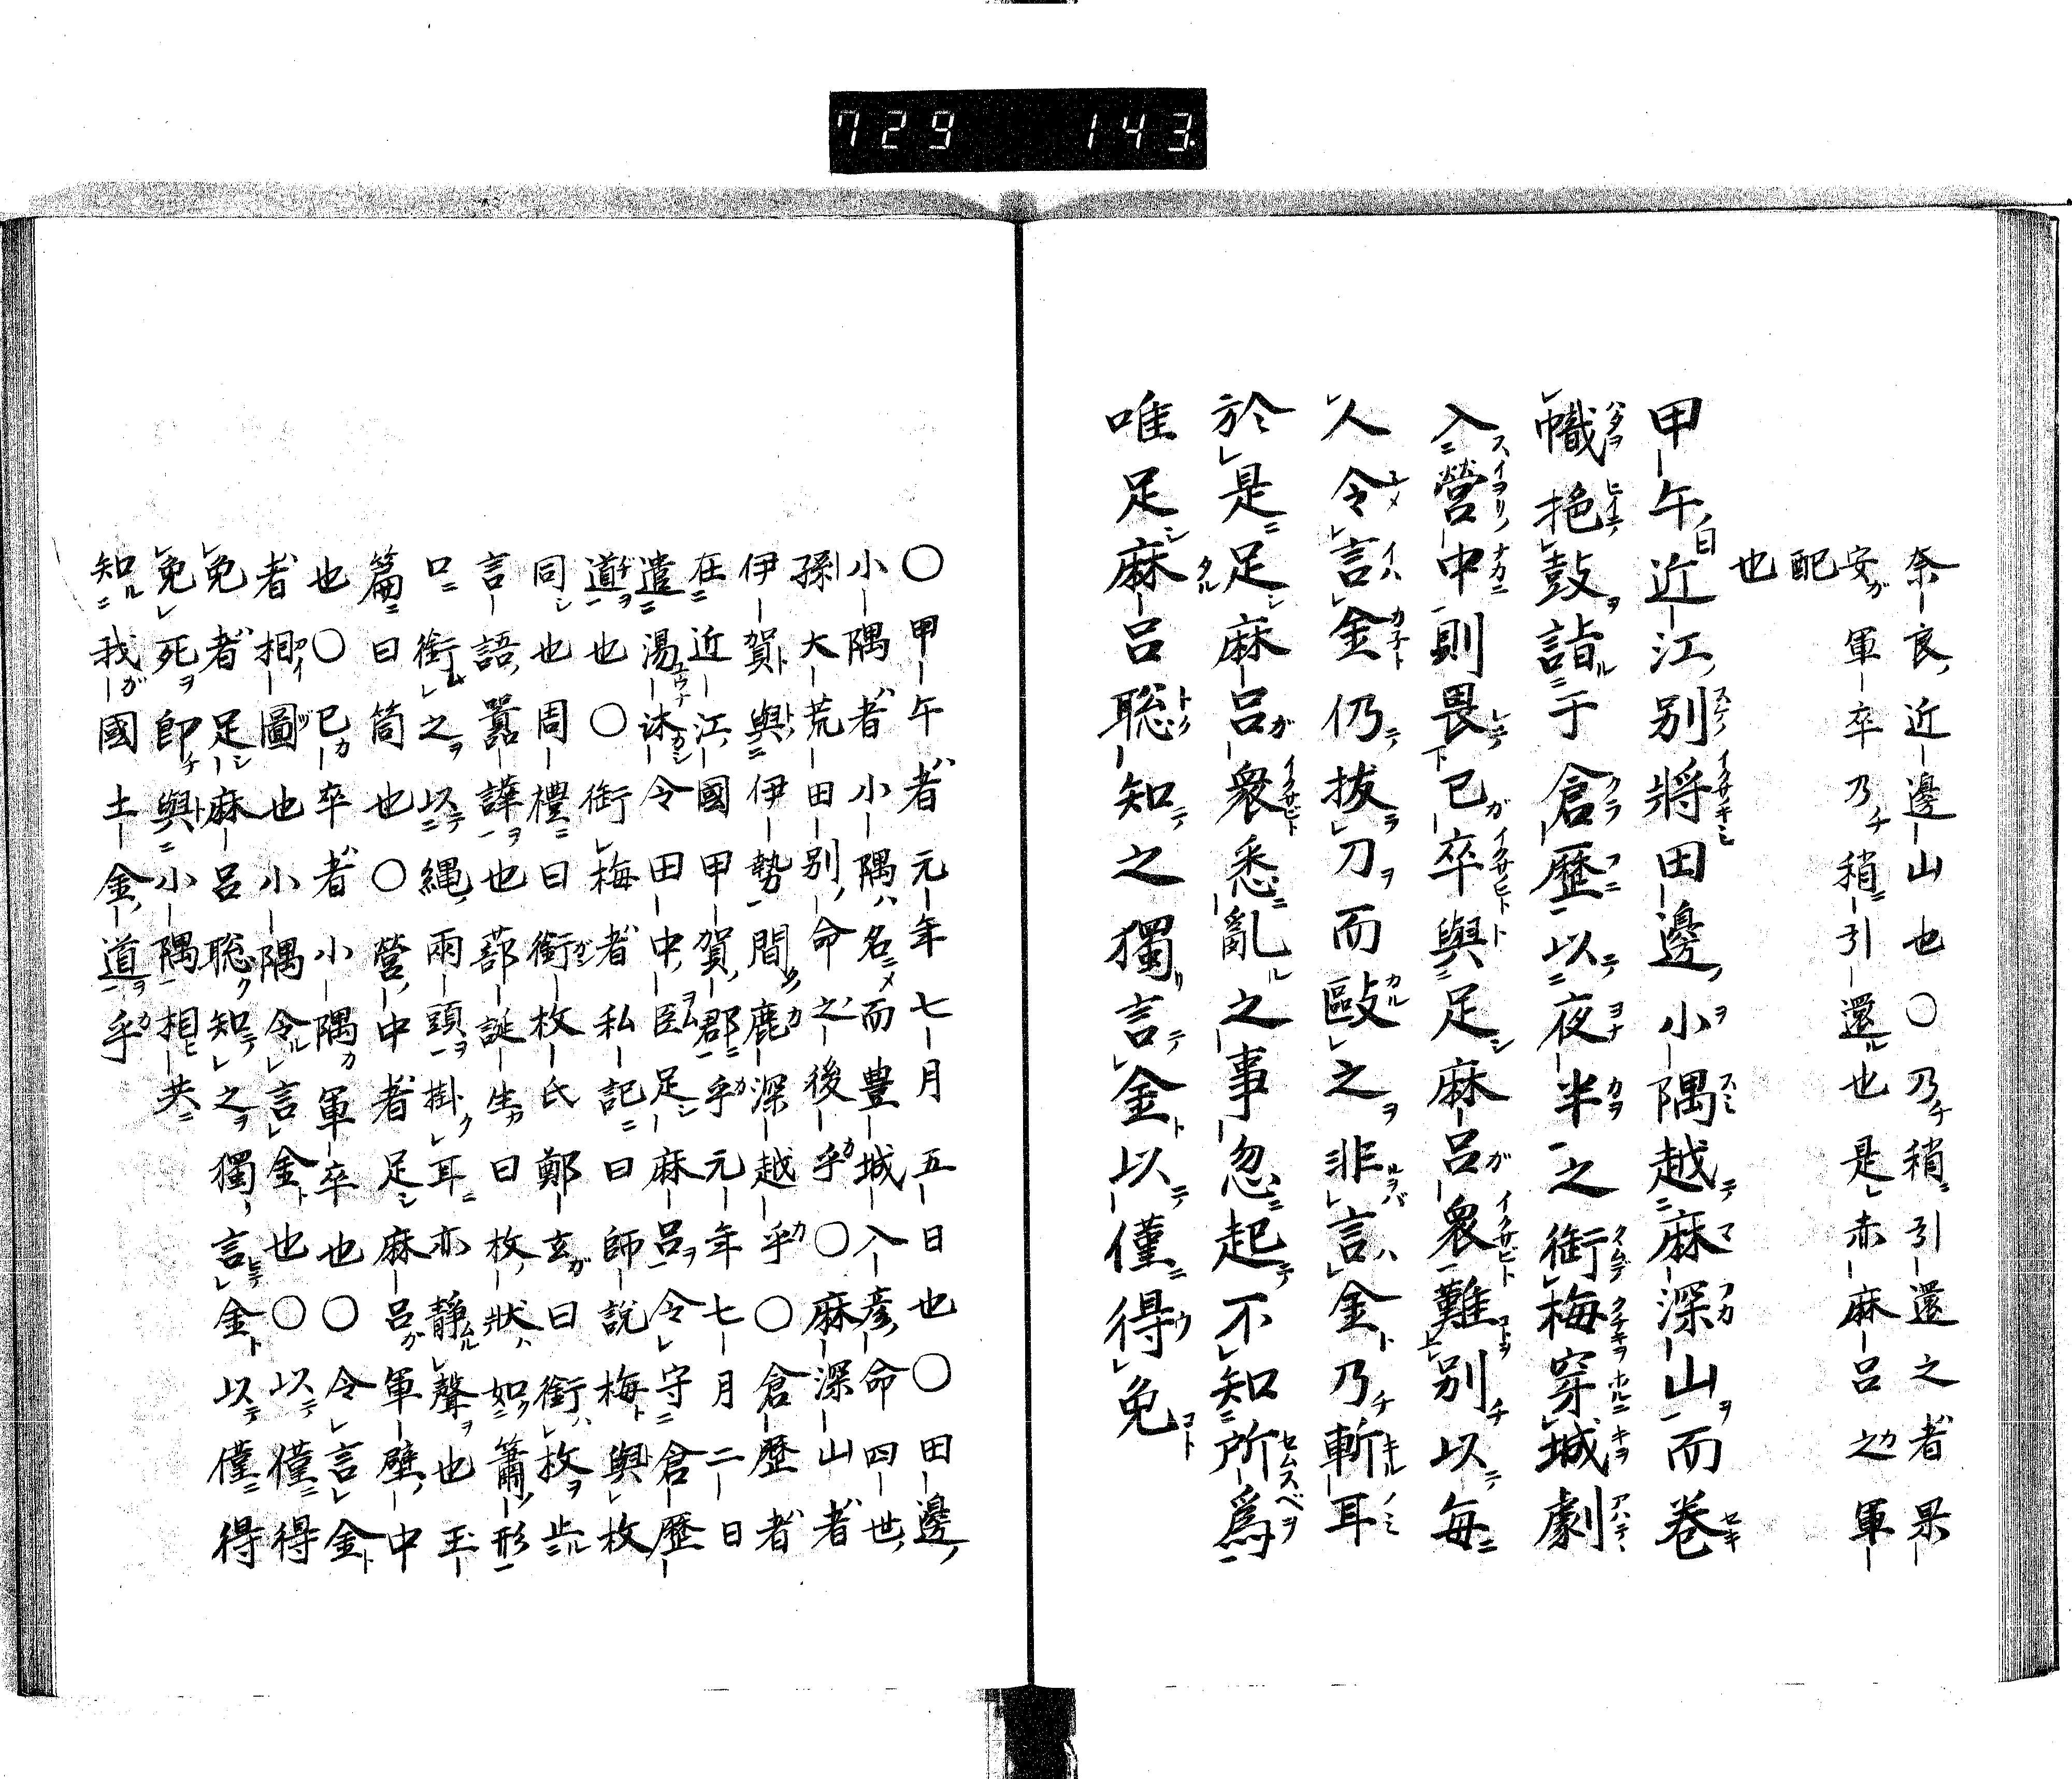 729 143
奈良近邊山也○乃稍引還之者果
安軍卒乃稍引還也是赤麻呂之軍
配
也
甲午近江別將田邊小隅越麻深山而卷
幟抱鼓詣于倉歷以夜半之銜梅穿城劇
入營中則畏己卒與足麻呂衆難別以每
人令言金仍拔刀而毆之非言金乃斬耳
於是足麻呂衆悉亂之事忽起不知所爲
唯足麻呂聡知之獨言金以僅得免
○甲午者元年七月五日也○田邊
小隅者小隅名而豊城入彦命四世
孫大荒田別命之後乎○麻深山者
伊賀與伊勢間鹿深越乎○倉歷者
在近江國甲賀郡乎元年七月二日
遣湯沐令田中臣足麻呂令守倉歷
道也○銜梅者私記曰師說梅與枚
同也周禮曰銜枚氏鄭玄曰銜枚止
言語囂譁也蔀誕生曰枚狀如簫形
口銜之以繩兩頭掛耳亦靜聲也玉
篇曰筒也○營中者足麻呂軍壁中
也○己卒者小隅軍卒也○令言金
者相圖也小隅令言金也○以僅得
免者足麻呂聡知之獨言金以僅得
免死即與小隅相共
知我國土金道乎